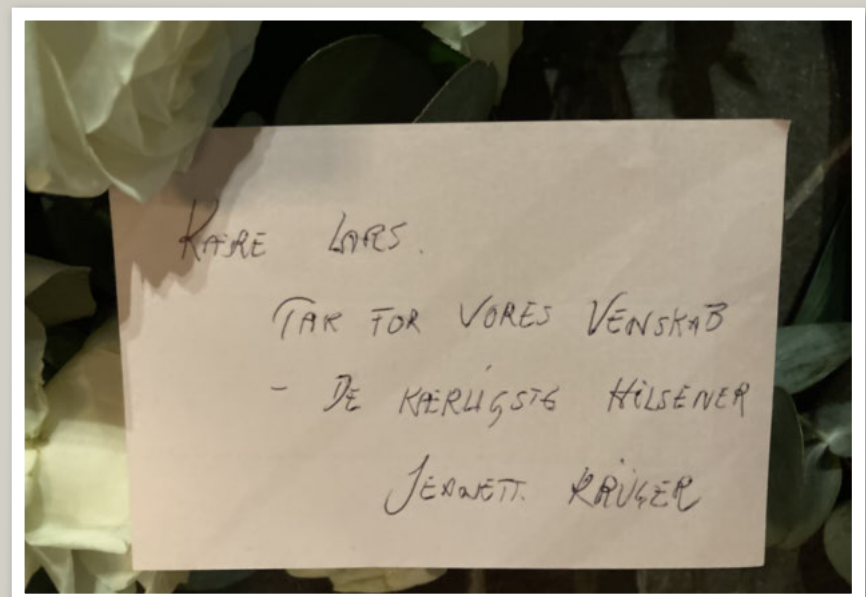 KÆRE LARS.
TAK FOR VORES VENSKAB
- DE KÆRLIGSTE HILSENER
JEANETT. KRÜGER